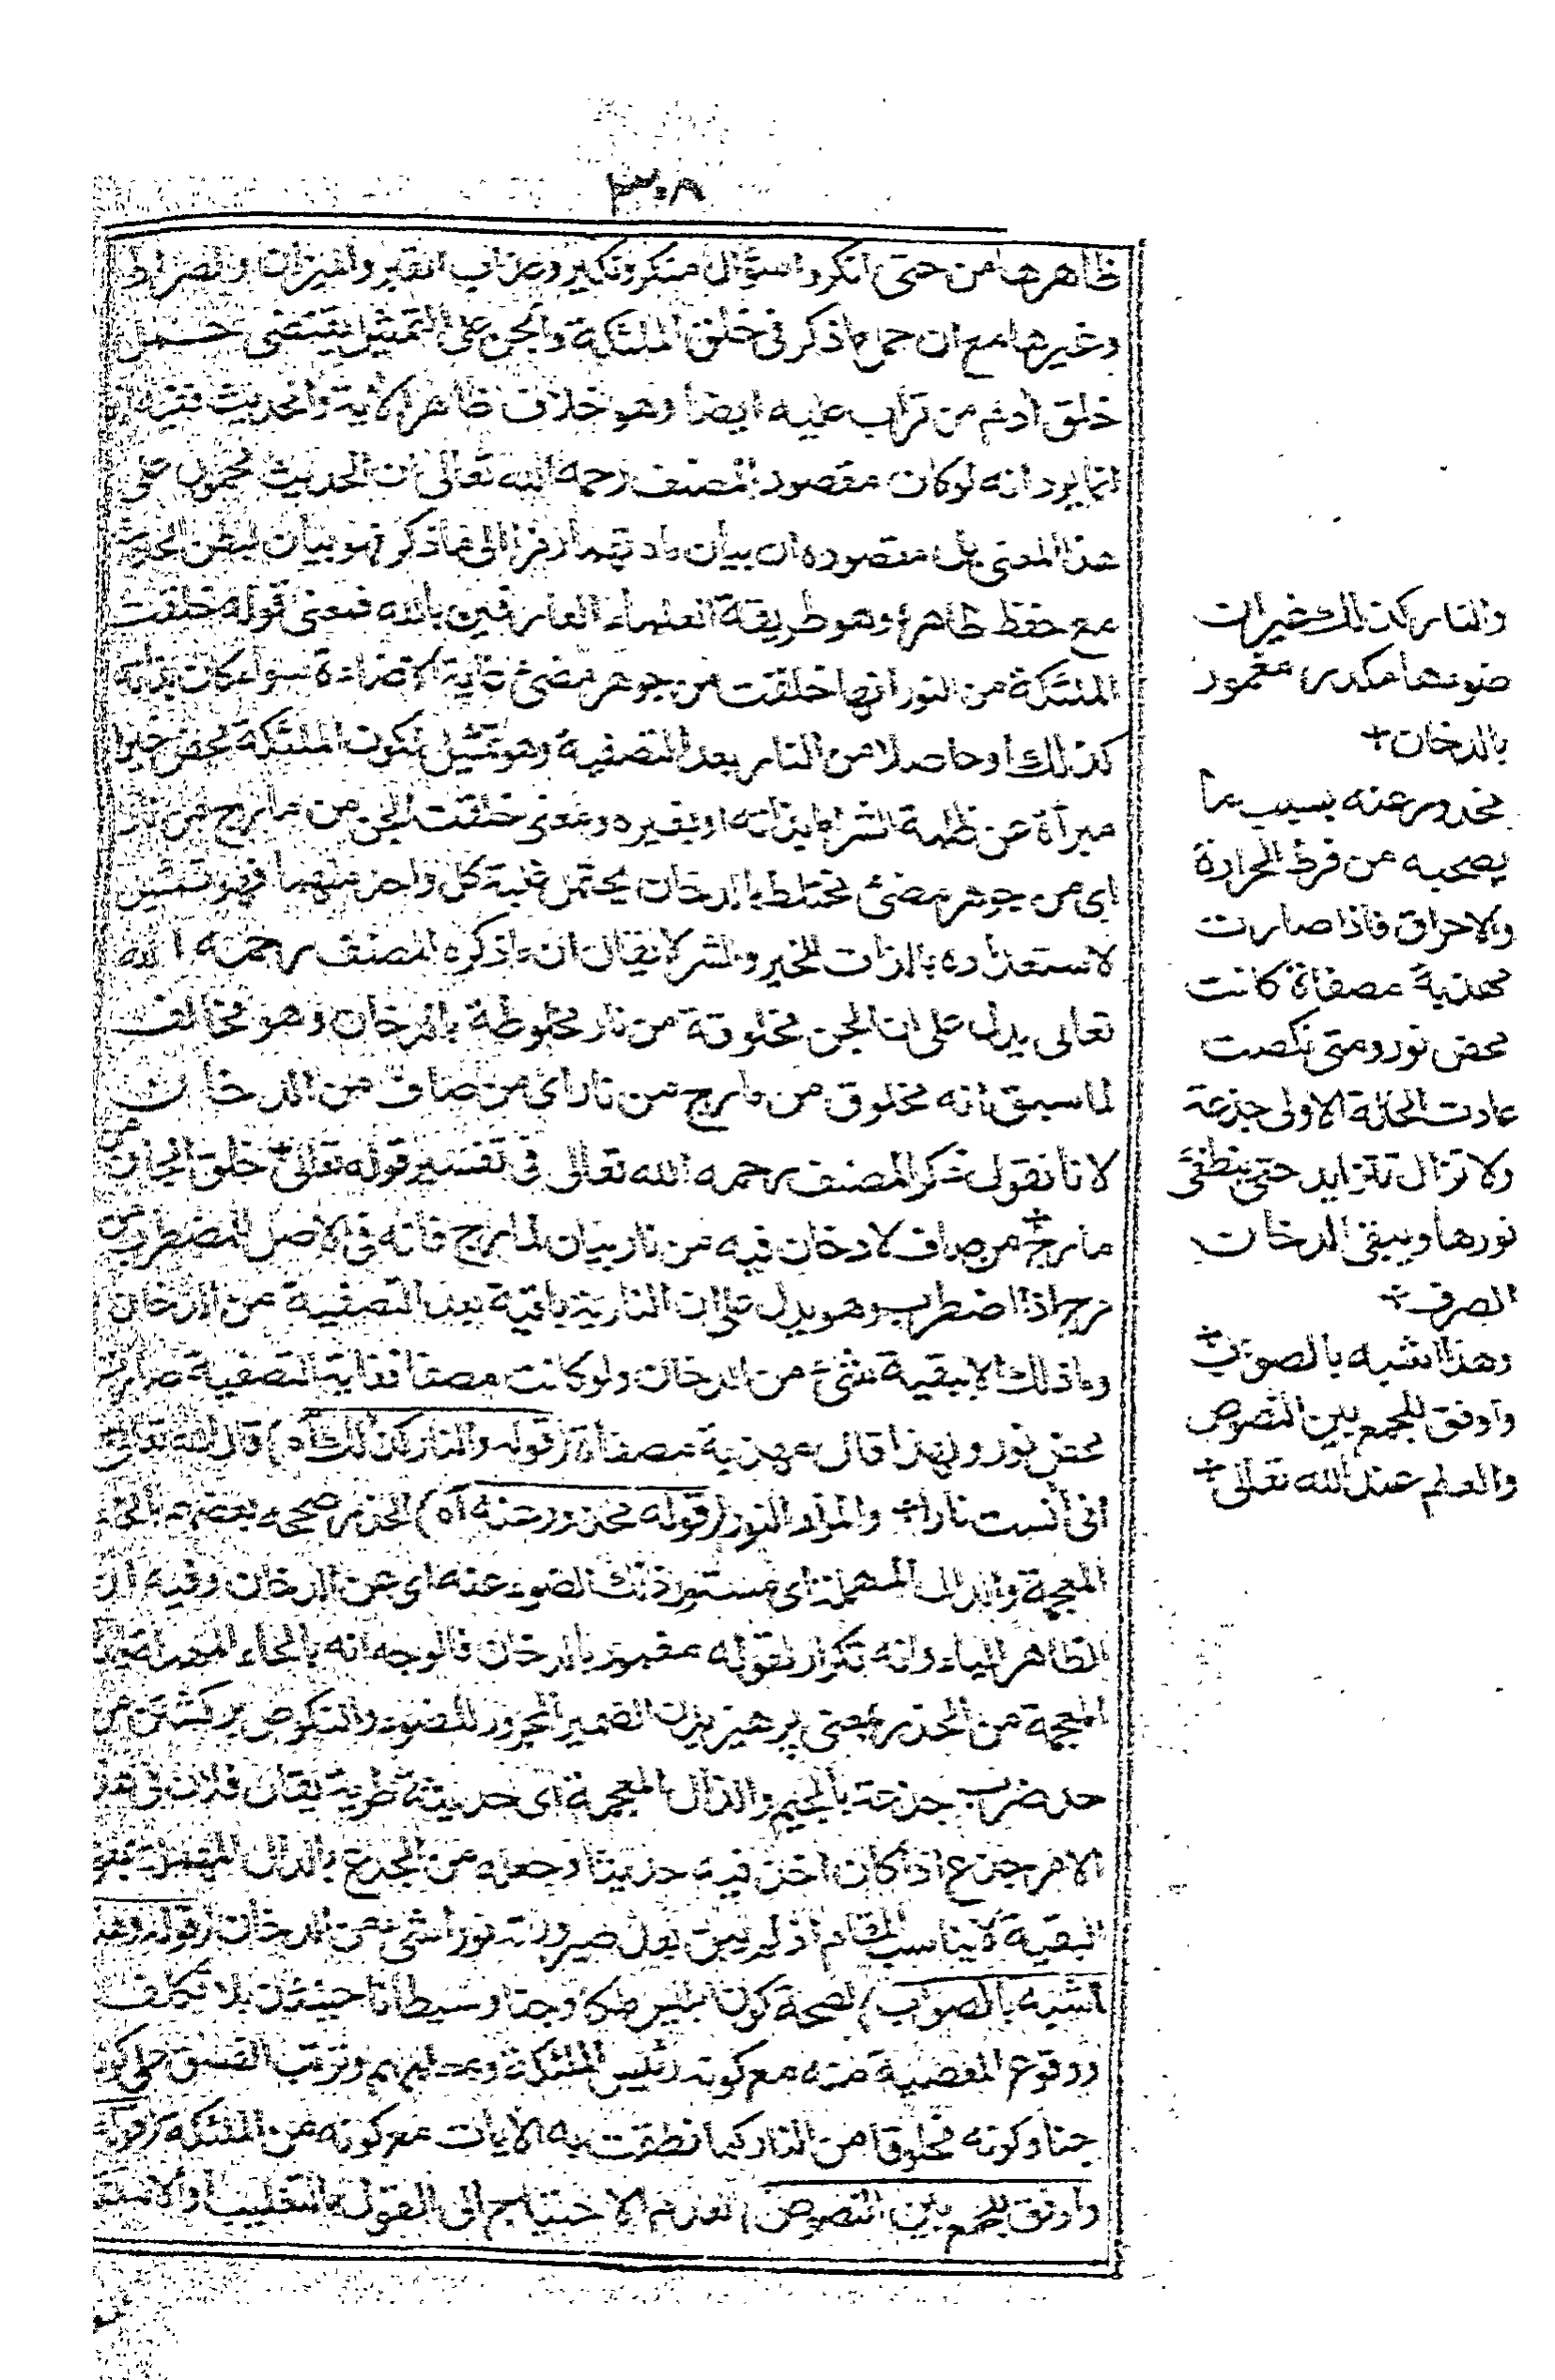 ٣٠٨
ظاهرها من حتى انكروا سؤال منكر ونكير وعذاب القبر والميزان والصراط
وغيرها مع ان حمل ما ذكر فى خلق الملئكة والجن على التمثيل يقتضى حمل
خلق ادم من تراب عليه ايضا وهو خلاف ظاهر الاية والحديث ففيه ان
انما يرد انه لو كان مقصود المصنف رحمه الله تعالى ان الحديث محمول على
هذا المعنى بل مقصوده ان بيان مادتهما رمزا الى ما ذكر فهو بيان لبطن الحديث
مع حفظ ظاهره وهو طريقة العلماء العارفين بالله فمعنى قوله خلقت
الملئكة من النور انها خلقت من جوهر مضئ غاية الاضاءة سواء كان بذاته
كذلك او حاصلا من النار بعد التصفية وهو تمثيل لكون الملئكة محض خيرا
مبرأة عن ظلمة الشر اما بذاته او بغيره ومعنى خلقت الجن من مارج من نار
اى من جوهر مضئ مختلط بالدخان يحتمل غلبة كل واحد منهما فهو تمثيل
لاستعداده بالذات للخير والشر لا يقال ان ما ذكره المصنف رحمه الله
تعالى يدل على ان الجن مخلوقة من نار مخلوطة بالدخان وهو مخالف
لما سبق انه مخلوق من مارج من نار اى من صاف من الدخان
لانا نقول ذكر المصنف رحمه الله تعالى فى تفسير قوله تعالى خلق الجان من
مارج من صاف لا دخان فيه من نار بيان لمارج فانه فى الاصل للمضطرب من
مرج اذا اضطرب وهو يدل على ان النارية باقية بعد التصفية عن الدخان
وما ذلك الا ببقية شئ من الدخان ولو كانت مصفاة غاية التصفية صارت
محض نور ولهذا قال مهذبة مصفاة (قوله والنار كذلك اه) قال الله تعالى
انى انست نارا والمراد النور (قوله محذور عنه اه) الحذر صححه بعضهم بالخاء
المعجمة والدال المهملة اى مستور ذلك الضوء عنه اى عن الدخان وفيه ان
الظاهر الباء وانه تكرار لقوله مغمور بالدخان فالوجه انه بالحاء المهملة والذال
المعجمة من الحذر بمعنى پرهيزيدن الضمير المجرور للضوء والنكوص بركشتن من
حد ضرب جذعة بالجيم والذال المعجمة اى حديثة طرية يقال فلان فى هذا
الامر جذع اذا كان اخذ فيه حديثا وجعله من الجدع بالدال المهملة بمعنى
البقية لا يناسب المقام اذ لم يبق بعد صيرورته نورا شئ من الدخان (قوله وهذا
اشبه بالصواب) لصحة كون ابليس ملكا وجنا وشيطانا حينئذ بلا تكلف
ووقوع المعصية منه مع كونه رئيس الملئكة ومعلمهم وترتب الفسق على كونه
جنا وكونه مخلوقا من النار كما نطقت به الايات مع كونه من الملئكة (قوله
واوفق للجمع بين النصوص) لعدم الاحتياج الى القول بالتغليب او الاستثناء
والنار كذلك غير ان
ضوءها مكدر مغمور
بالدخان
محذور عنه بسبب ما
يصحبه من فرط الحرارة
والاحراق فاذا صارت
مهذبة مصفاة كانت
محض نور ومتى نكصت
عادت الحالة الاولى جذعة
ولا تزال تتزايد حتى ينطفئ
نورها ويبقى الدخان
الصرف
وهذا اشبه بالصواب
واوفق للجمع بين النصوص
والعلم عند الله تعالى